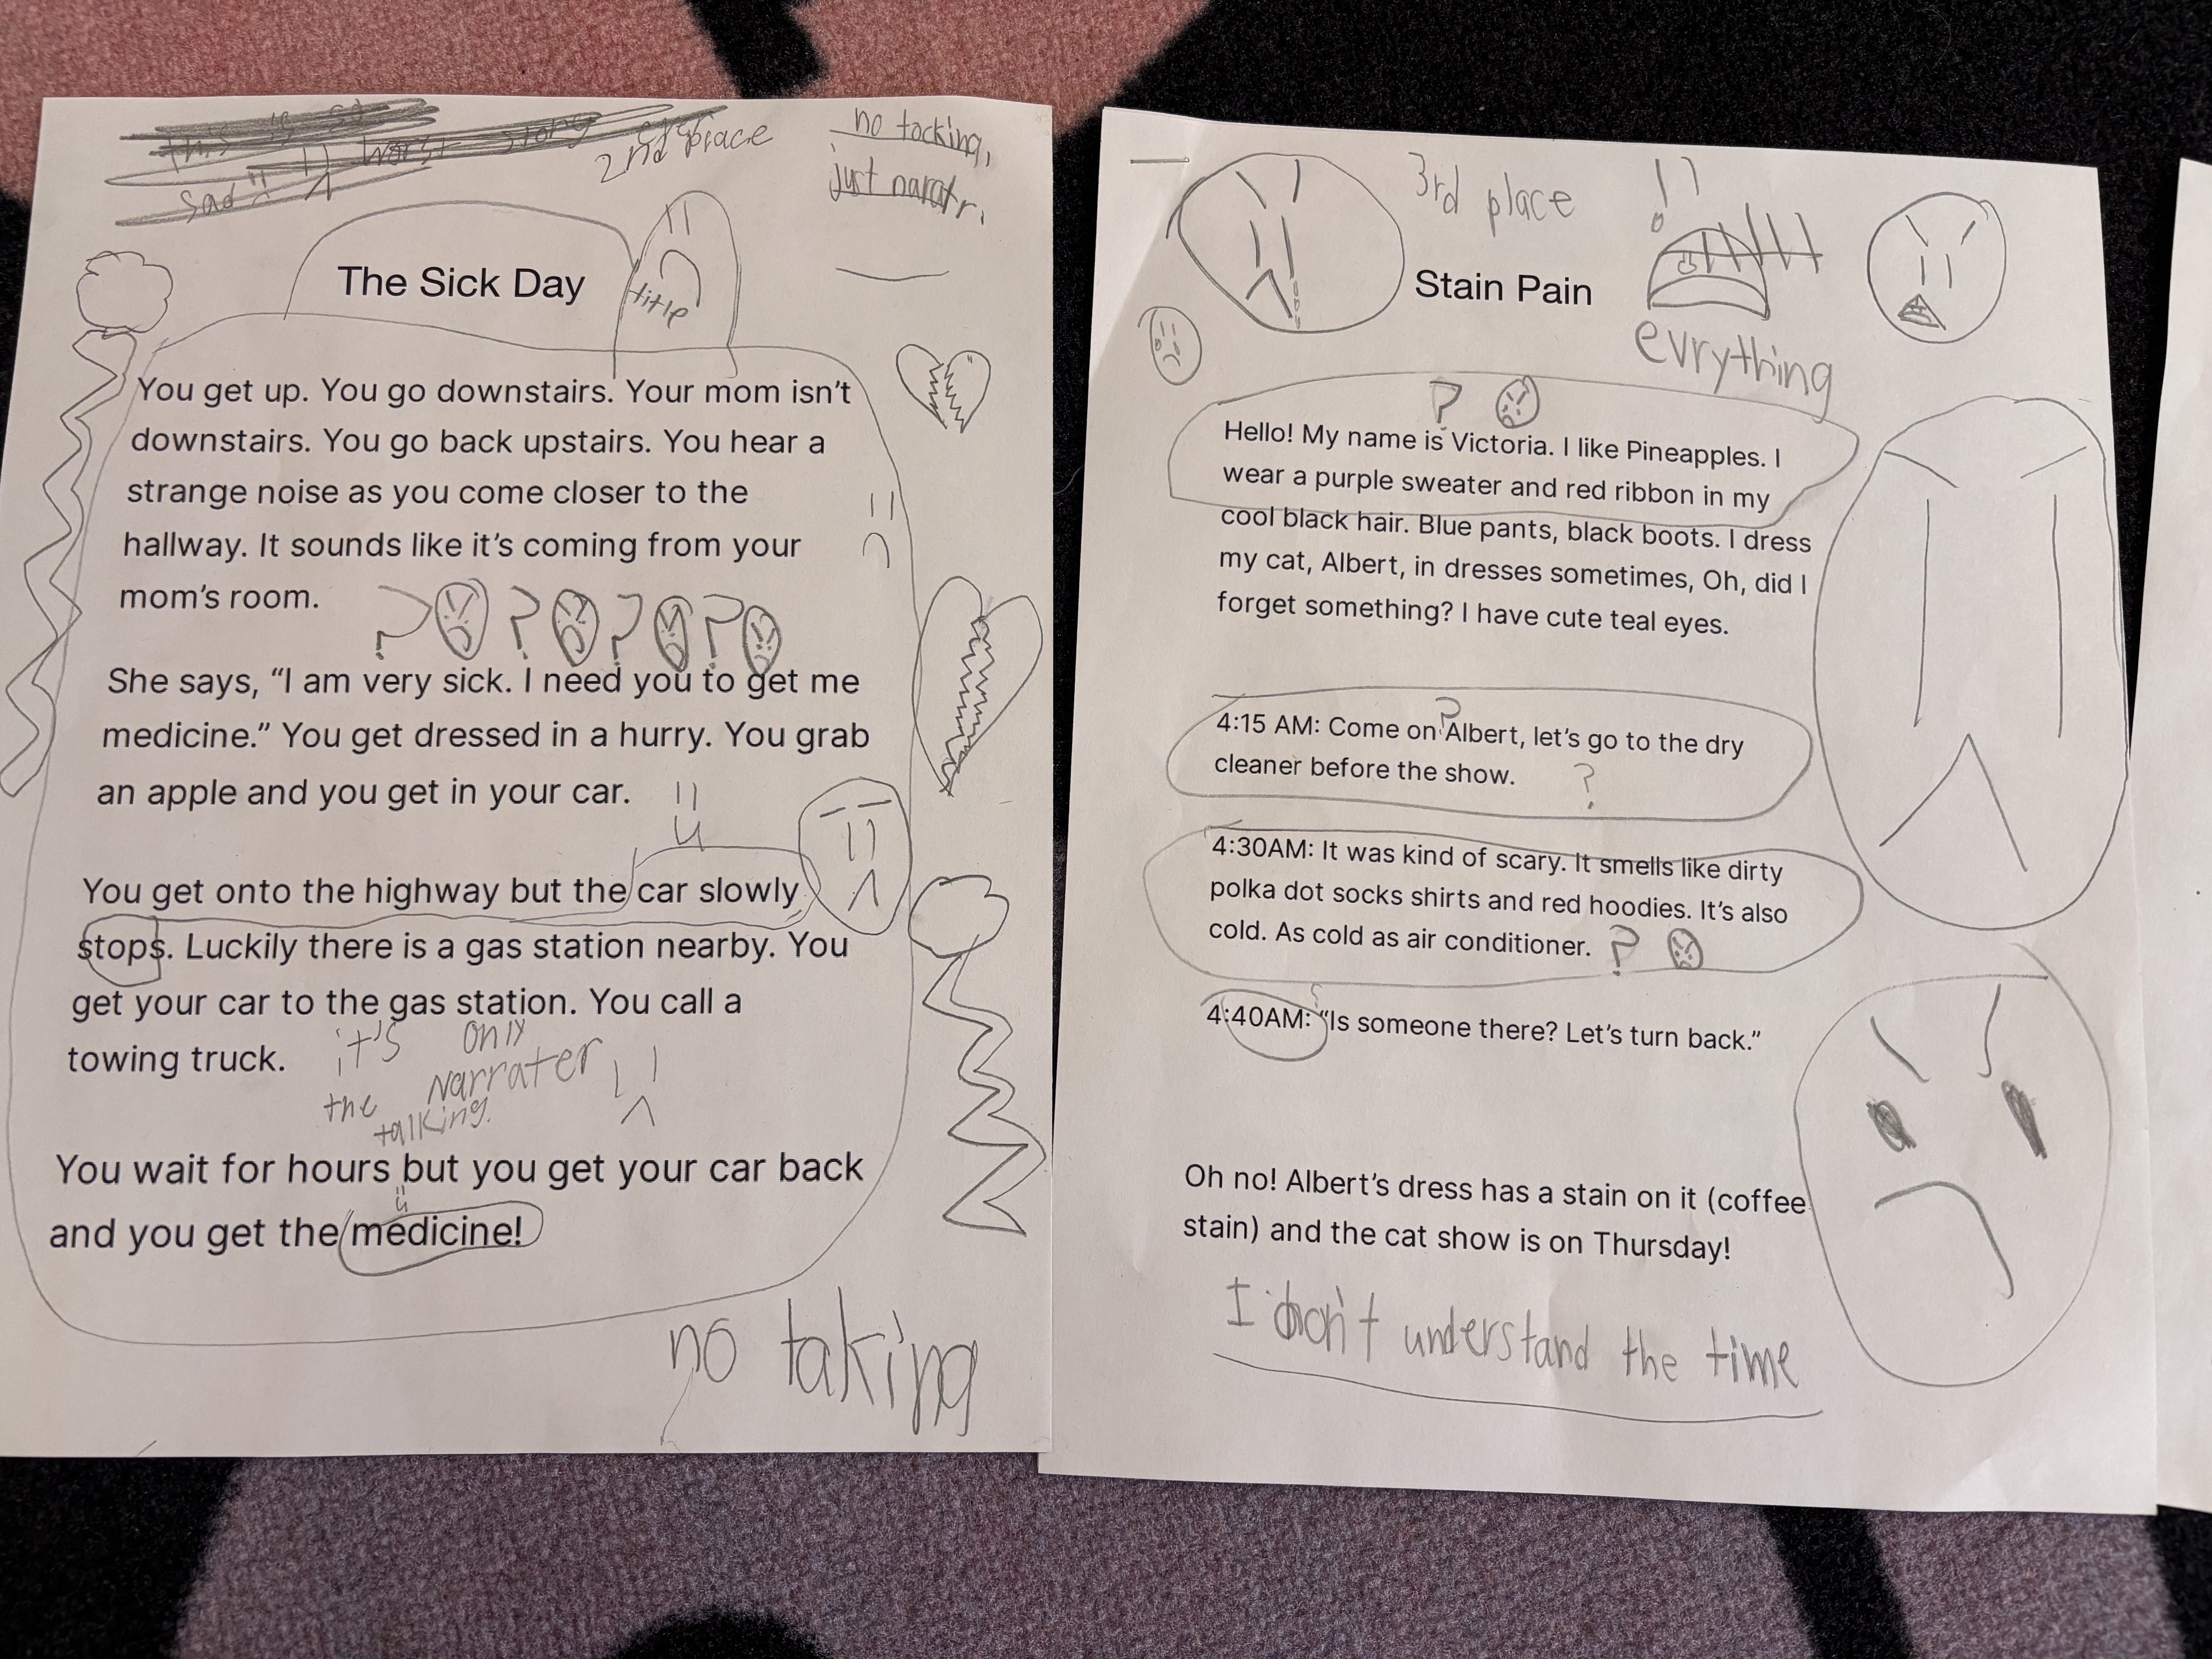 This is so
sad worst story
2nd place
no tacking,
just nararr.
The Sick Day
title
You get up. You go downstairs. Your mom isn't
downstairs. You go back upstairs. You hear a
strange noise as you come closer to the
hallway. It sounds like it's coming from your
mom's room.
? ? ? ?
She says, “I am very sick. I need you to get me
medicine.” You get dressed in a hurry. You grab
an apple and you get in your car.
You get onto the highway but the car slowly
stops. Luckily there is a gas station nearby. You
get your car to the gas station. You call a
towing truck.
it's only
the Narrater
talking.
You wait for hours but you get your car back
and you get the medicine!
no taking
3rd place
Stain Pain
evrything
?
Hello! My name is Victoria. I like Pineapples. I
wear a purple sweater and red ribbon in my
cool black hair. Blue pants, black boots. I dress
my cat, Albert, in dresses sometimes, Oh, did I
forget something? I have cute teal eyes.
?
4:15 AM: Come on Albert, let's go to the dry
cleaner before the show.
?
4:30AM: It was kind of scary. It smells like dirty
polka dot socks shirts and red hoodies. It's also
cold. As cold as air conditioner. ?
4:40AM: “Is someone there? Let's turn back.”
Oh no! Albert's dress has a stain on it (coffee
stain) and the cat show is on Thursday!
I don't understand the time